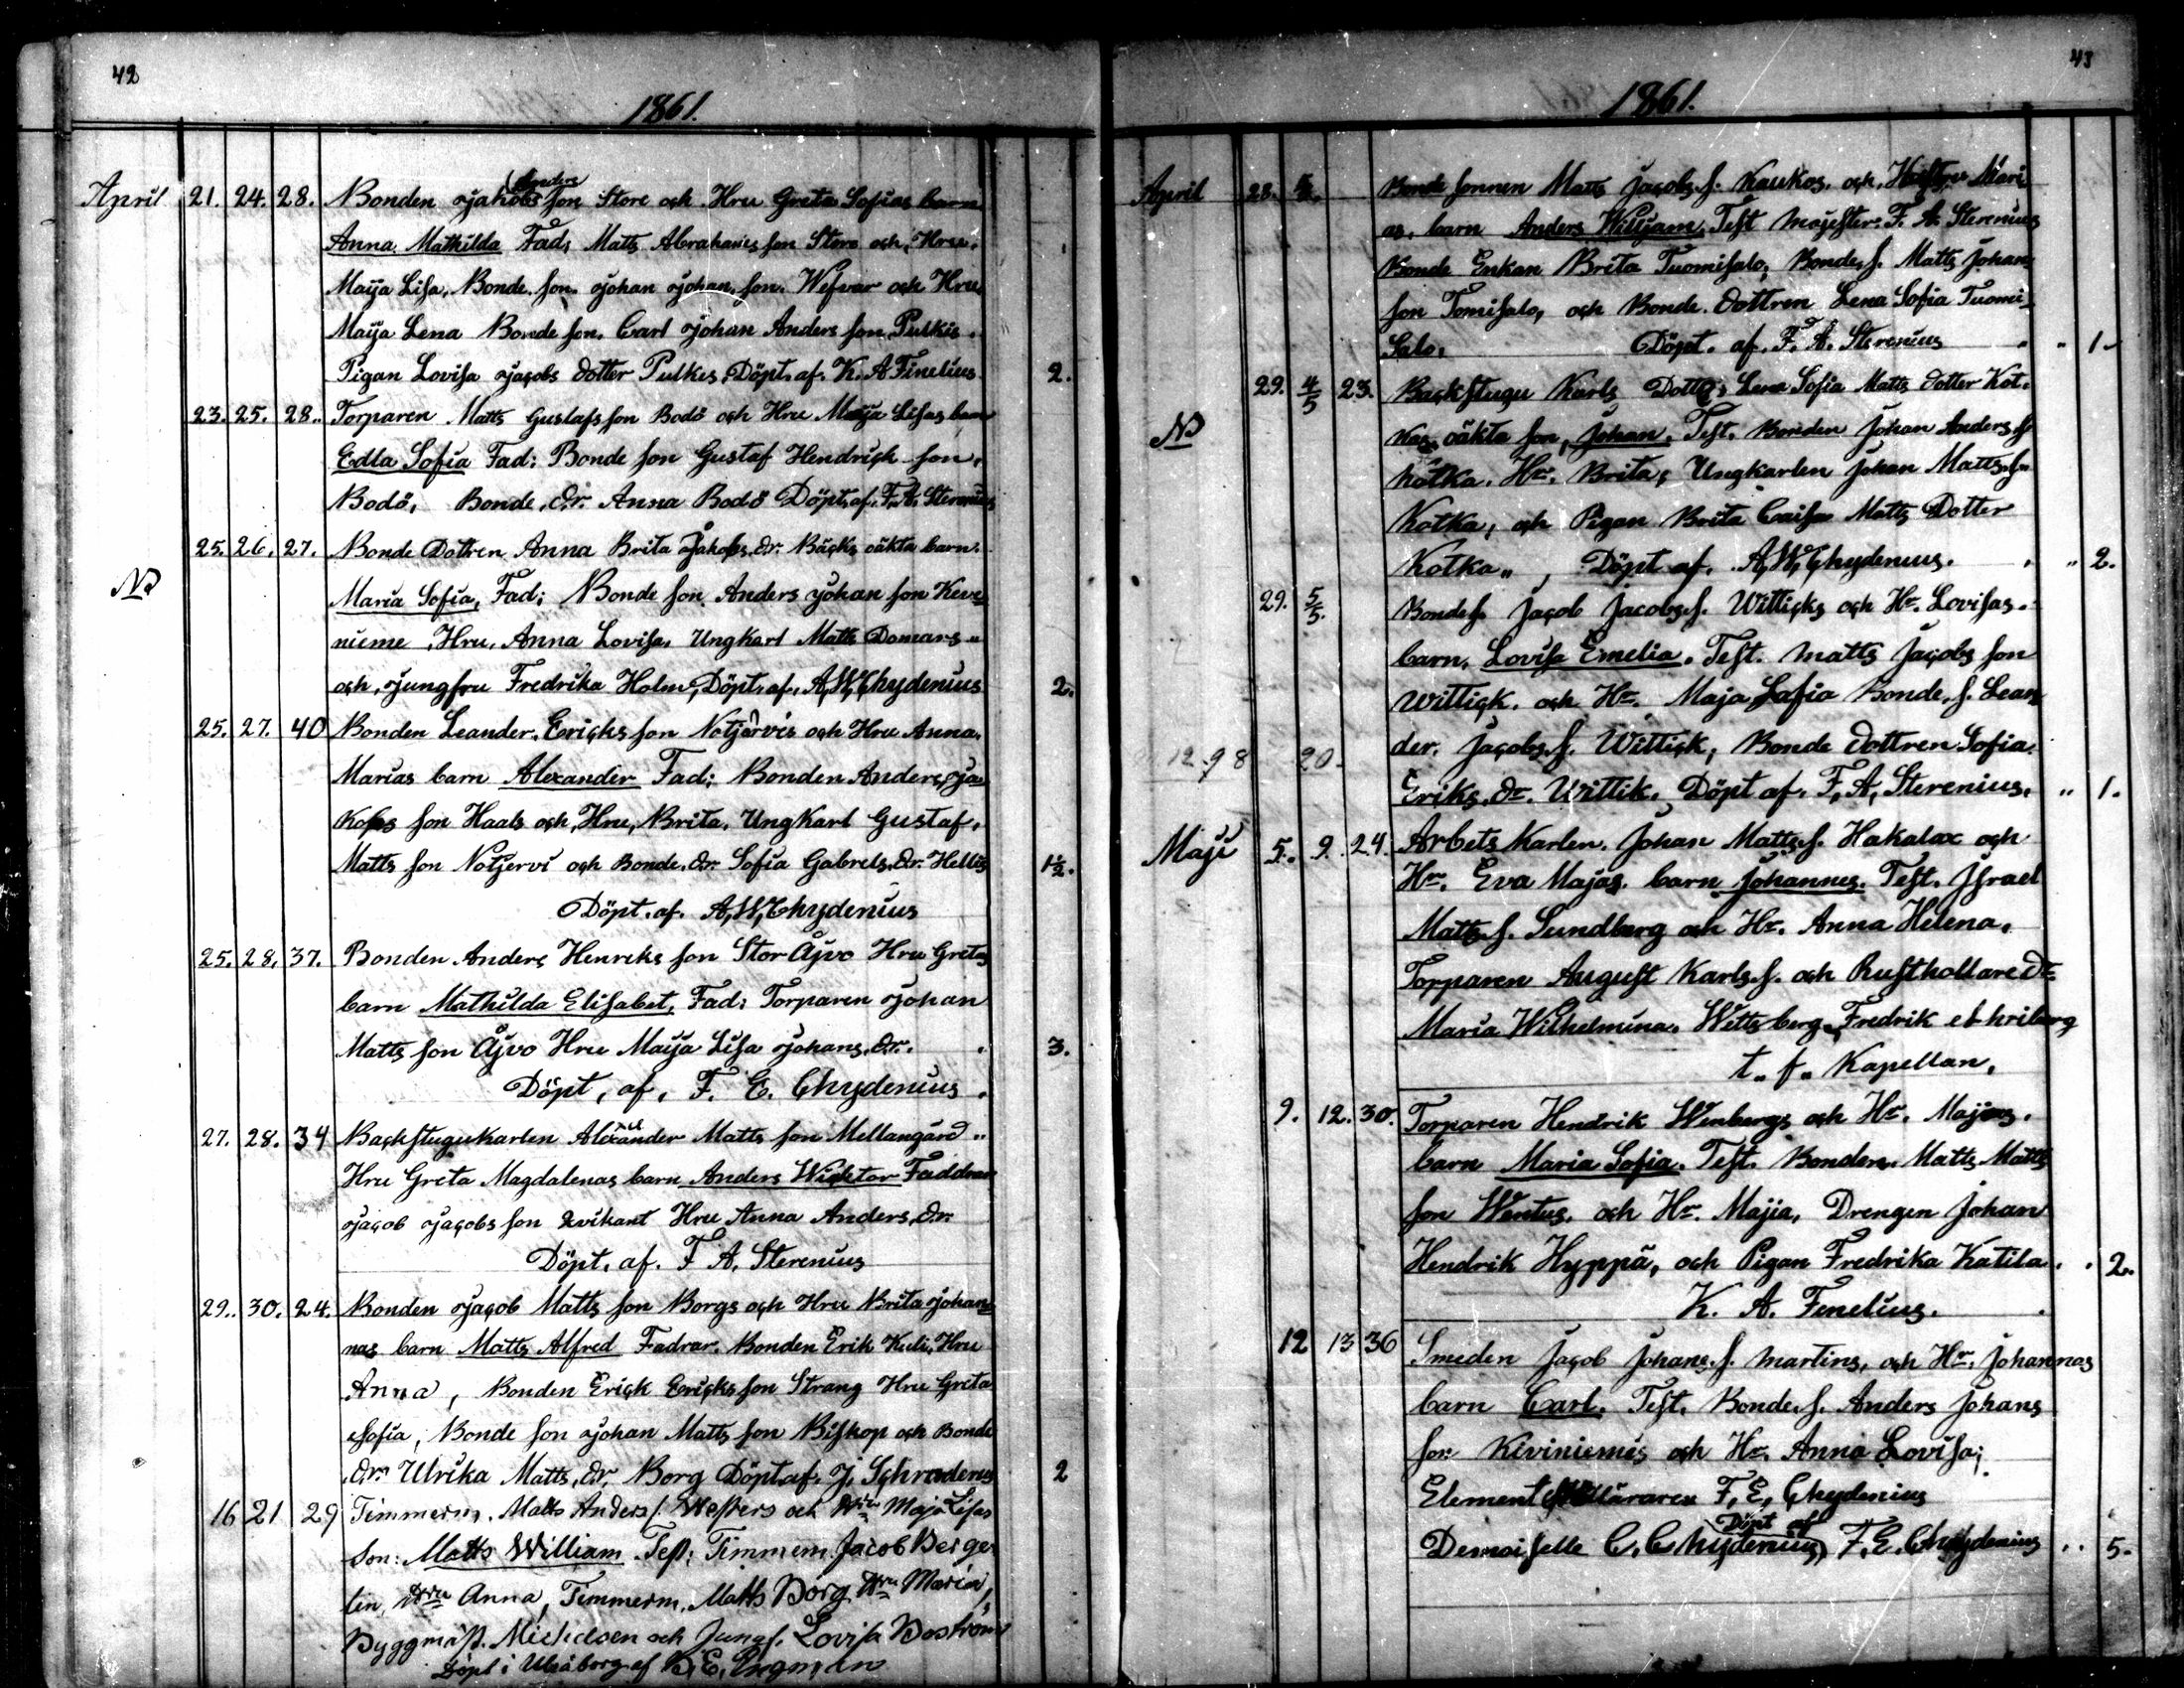 42
1861.
April 21. 24. 28. Bonden Jakobs Anders son Store och Hru Greta Sofias barn
Anna Mathilda Fad; Matts Abrahams son Store och Hru.
Maija Lisa, Bonde son Johan Johans son Wefvar och Hru
Maija Lena Bonde son Carl Johan Anders son Pulkis.
Pigan Lovisa Jacobs dotter Pulkes, Döpt. af. K. A Finelius 2.
23. 25. 28. Torparen Matts Gustafs son Bodö och Hru Maija Lisas barn
Edla Sofia Fad: Bonde son Gustaf Hendrick son.
Bodö, Bonde. dr. Anna Bodö Döpt. af. F. A. Sterenius
25. 26. 27. Bonde Dottren Anna Brita Jakobs. dr. Bäcks oäkta barn.
Nd Maria Sofia, Fad; Bonde son Anders Johan son Keve=
nieme, Hru. Anna Lovisa, Ungkarl Matts Domars
och, Jungfru Fredrika Holm, Döpt. af. A. W. Chydenius 2.
25. 27. 40 Bonden Leander. Ericks son Notjärvis och Hru Anna.
Marias barn Alexander Fad: Bonden Anders, Ja=
kobs son Haals och, Hru, Brita, Ungkarl Gustaf.
Matts son Notjervi och Bonde. dr. Sofia Gabriels. dr. Hellis 1½.
Döpt. af. A. W. Chydenius
25. 28. 37. Bonden Anders Henreks son Stor Åjvo Hru Gretas
barn Mathilda Elisabet, Fad: Torparen Johan
Matts son Åjvo Hru Maija Lisa Johans. dr. 3.
Döpt, af, F. E. Chydenius.
27. 28. 34 Backstugukarlen Alexander Matts son Mellangård
Hru Greta Magdalenas barn Anders Wicktor Faddrar
Jacob Jacobs son Kvikant Hru Anna Anders. dr.
Döpt. af. F A. Sterenius
29. 30. 24. Bonden Jacob Matts son Borgs och Hru Brita Johan=
nas barn Matts Alfred Fadrar. Bonden Erik Keeli, Hru
Anna, Bonden Erick Ericks son Strang Hru Greta
Sofia, Bonde son Johan Matts son Biskop och Bonde
dr. Ulrika Matts. dr. Borg Döpt. af. J. Schroderus 2
16 21 29 Timmerm. Matts Anders s. Westers och Hru Maja Lisas
Son: Matts William. Test: Timmerm. Jacob Berge
lin, Hru Anna, Timmerm. Matts Borg, Hru Maria,
Byggmäst. Michelsen och Jungf. Lovisa Boström
Döpt i Uleåborg af B. E. Ingman
43
1861.
April 28. 5/5. Bonde sonnen Matts Jacobs. s. Kaukos. och, Hustru Mari
as, barn Anders William. Test Majester. F. A. Sterenius
Bonde Enkan Brita Tuomisalo, Bonde. s. Matts Johan
son Tomisalo, och Bonde. dottren Lena Sofia Tuomi=
Salo. Döpt. af. F. A. Sterenius 1.
29. 4/5 23. Backstugu Karls Dotter, Lena Sofia Matts dotter Kot=
Nd kas oäkta son, Johan. Test. Bonden Johan Anders. s
Kotka. Hr. Brita, Ungkarlen Johan Matts. s.
Kotka, och Pigan Brita Caisa Matts Dotter
Kotka, Döpt af. A. W. Chydenius. 2.
29. 5/5. Bonde s. Jacob Jacobs. s. Witticks och Hr. Lovisas.
barn, Lovisa Emelia. Test. Matts Jacobs son
Wittick. och Hr. Maja Safia Bonde. s. Lean=
12. 98 20. der. Jacobs. s. Wittick, Bonde dottren Sofia
Eriks. dr. Wittik. Döpt af. F. A. Sterenius. 1.
Maji 5. 9. 24. Arbets Karlen. Johan Matts. s. Hakalax och
Hr. Eva Majas. barn Johannes. Test. Israel
Matts. s. Sundberg och Hr. Anna Helena.
Torparen August Karls. s. och Rusthollare dr
Maria Wilhelmina. Wettsberg. Fredrik ehriberg
t. f. Kapellan.
9. 12. 30. Torparen Hendrik Wenbergs och Hr. Majias.
barn Maria Sofia. Test. Bonden. Matts Matts
son Wentus. och Hr. Majia, Drengen Johan
Hendrik Hyppä, och Pigan Fredrika Katila. 2.
K. A. Finelius.
12 13 36 Smeden Jacob Johans. s. Martins, och Hr. Johannas
barn Carl. Test. Bonde. s. Anders Johans
son Kiviniemis och Hr. Anna Lovisa;
Element läraren F. E. Chydenius
Demoiselle C. Chydenius, Döpt af F. E. Chydenius 5.